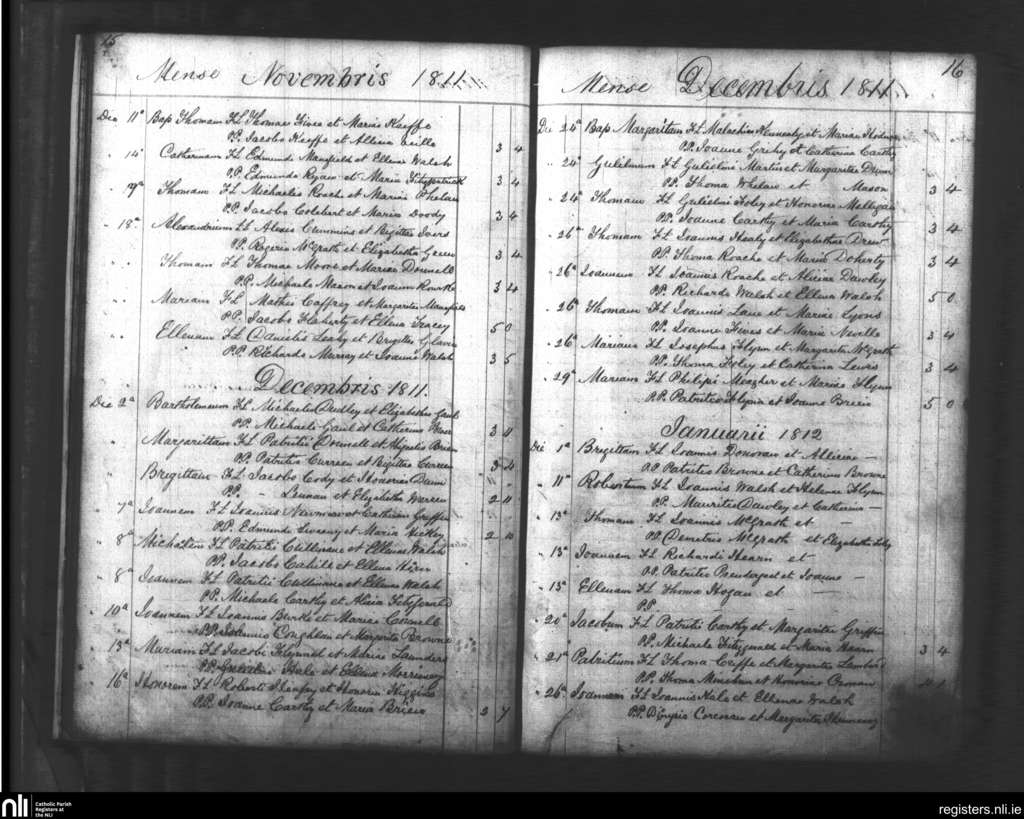 15
Mense Novembris 1811
Die 11ª Bap Thomam FL Thomae Fives et Maria Keeffe
PP. Jacobo Keeffe et Alicia 3 4
" 14ª Catherinam FL Edmundi Mansfield et Ellena Walsh
P.P. Edmundo Ryan et Maria Fitzpatrick 3 4
" 17ª Thomam FL Michaelis Roach et Maria Phelan
P.P. Jacobo Colebert et Maria Doody 3 4
" 18ª Alexandrum FL Alexis Cummins et Bigittae
PP. Rogerio McGrath et Elizabetha Green 3 4
" Thomam FL Thomae Moore et Mariae Donnell
P.P. Michaele Mason et Joanna Rourke 3 4
" Mariam FL Mathei Caffrey et Margaritae Mansfield
P.P. Jacobo Flaherty et Ellena Tracey 5 0
" Ellenam FL Danielis Leahy et Brigittae
P.P. Richardo Murray et Joanna Walsh 3 5
Decembris 1811.
Die 2ª Bartholomeum FL Michaelis Dudley et Elizabetha Gaul
PP. Michaele Gaul et Catherina 3 4
" Margarittam FL Patritii Donnell et Brien
PP. Patritio Curreen et Bigitta Curreen 3 4
" Brigittam FL Jacobo Cody et Honoria Dunn
PP. - Lennan et Elizabetha Warren 2 11
" 7ª Joannem FL Joannis Newman et Catherina Griffin
PP. Edmundo Sweeny et Maria Hickey 2 11
" 8ª Michálem FL Patritii Cullinane et Ellena Walsh
PP. Jacobo Cahill et Ellena
" 8ª Joannem FL Patritii Cullinane et Ellena Walsh
PP. Michaele Carthy et Alicia Fitzgerald
" 10ª Joannem FL Joannis Burke et Mariae Connell
P.P. Coughlan et Margarita Browne
" 13ª Mariam FL Jacobi Kennel et Mariae Launders
PP. Hale et Ellena Morrissey
" 16ª Honoram FL Roberti Sheafry et Honoria Higgins
P.P. Joanne Carthy et Maria Brien 3 7
16
Mense Decembris 1811
Die 24ª Bap Margaritam FL Malachiae Hennessy et Mariae
P.P. Joanne Grehy et Catherina Carthy
" 24ª Gulielmum FL Gulielmi Martin et Margaritae Dunn
PP. Thoma Whelan et Mason 3 4
" 24ª Thomam FL Gulielmi Foley et Honoriae Millegan
P.P. Joanne Carthy et Maria Carthy 3 4
" 26ª Thomam FL Joannis Healy et Elizabethae Drew
PP. Thoma Roache et Maria Doherty 3 4
" 26ª Joannem FL Joannis Roache et Aliciae Dawley
PP. Richardo Walsh et Ellena Walsh 5 0
" 26ª Thomam FL Joannis Lane et Mariae Lyons
PP. Joanne Fives et Maria Neville 3 4
" 26ª Mariam FL Josephus Flynn et Margarita McGrath
PP. Thoma Foley et Catherina Lewis 3 4
" 29ª Mariam FL Philipi Meagher et Mariae Flynn
P.P. Patritio Flynn et Joanna Brien 5 0
Januarii 1812
Die 1ª Brigittam FL Joannis Donovan et Alliciae —
P.P Patritio Browne et Catherina Browne
" 11ª Robertum FL Joannis Walsh et Helenae Flynn
PP. Mauritio Dawley et Catherina —
" 13ª Thomam FL Joannis McGrath et —
PP. Demetrio McGrath et Elizabetha Foley
" 13ª Joannem FL Richardi Hearn et
P.P. Patritio Prendergast et Joanna —
" 13ª Ellenam FL Thoma Hogan et —
PP. —
" 20ª Jacobum FL Patritii Carthy et Margaritae Griffin
PP. Michaele Fitzgerald et Maria Hearn 3 4
" 21ª Patritium FL Thoma Keiffe et Margaritae Lambert
P.P. Thoma Meaghan et Honoria Cronan
" 26ª Joannem FL Joannis Hale et Ellenae Walsh
P.P. Dionysio Corcoran et Margarita Hennessy
nli
Catholic Parish
Registers at
the NLI
registers.nli.ie